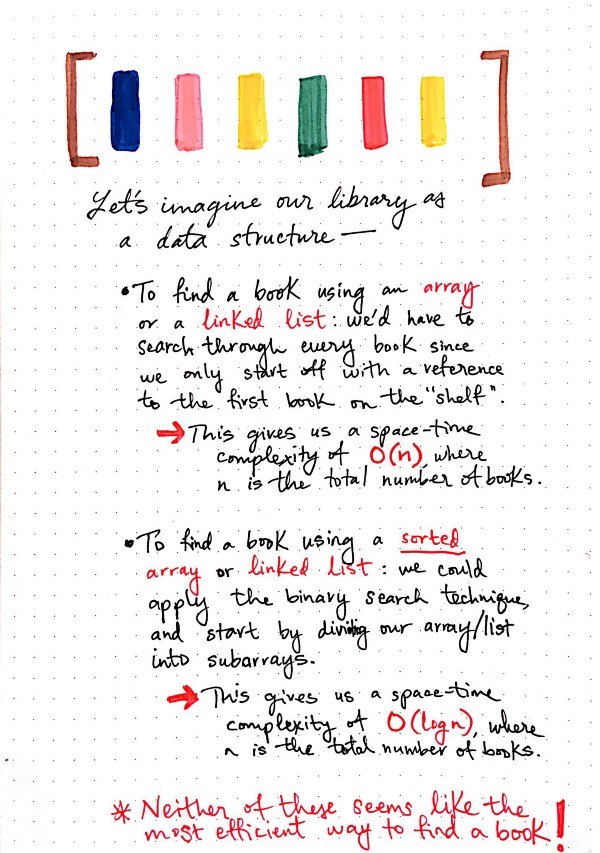 Let's imagine our library as
a data structure —
• To find a book using an array
or a linked list: we'd have to
search through every book since
we only start off with a reference
to the first book on the "shelf".
→ This gives us a space-time
complexity of O(n), where
n is the total number of books.
• To find a book using a sorted
array or linked list: we could
apply the binary search technique,
and start by dividing our array/list
into subarrays.
→ This gives us a space-time
complexity of O(logn), where
n is the total number of books.
* Neither of these seems like the
most efficient way to find a book!